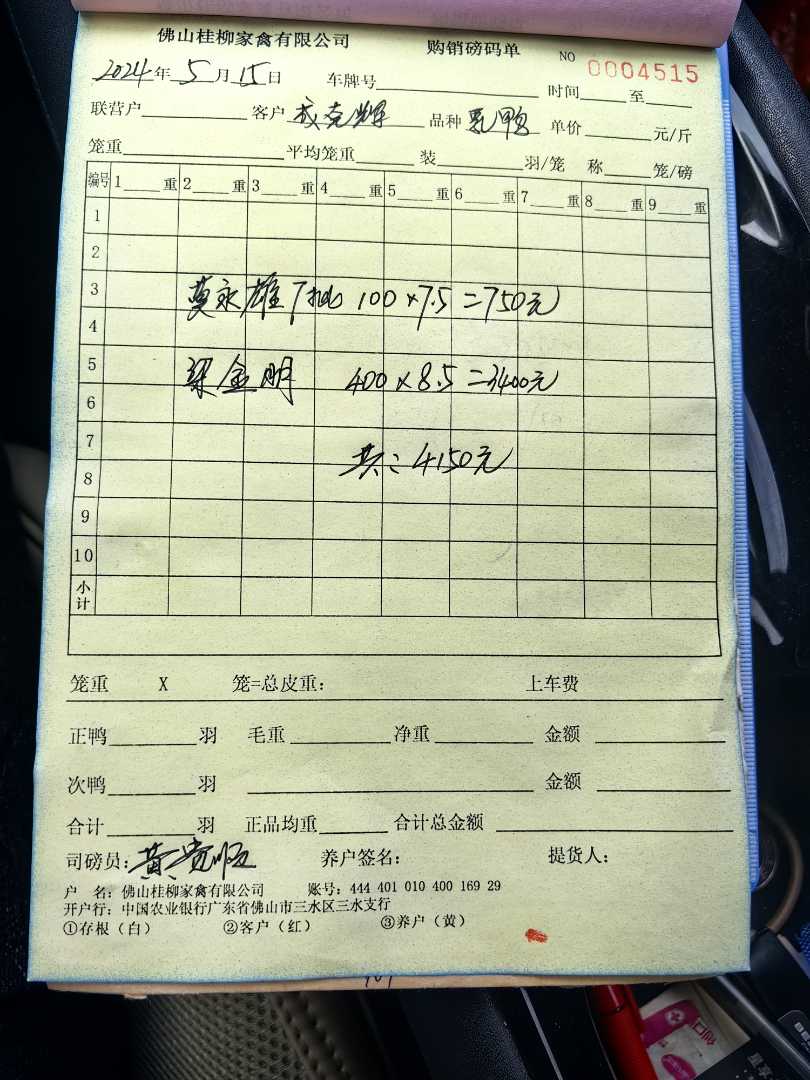 佛山桂柳家禽有限公司 购销磅码单 NO 0004515
2024年5月15日 车牌号 时间 至
联营户 客户 成克辉 品种 乳鸭 单价 元/斤
笼重 平均笼重 装 羽/笼 称 笼/磅
编号 1 重 2 重 3 重 4 重 5 重 6 重 7 重 8 重 9 重
1
2
3
莫永雄 100×7.5=750元
4
5
梁金明 400×8.5=3400元
6
7
共:4150元
8
9
10
小计
笼重 X 笼=总皮重: 上车费
正鸭 羽 毛重 净重 金额
次鸭 羽 金额
合计 羽 正品均重 合计总金额
司磅员:黄贵顺 养户签名: 提货人:
户 名:佛山桂柳家禽有限公司 账号:444 401 010 400 169 29
开户行:中国农业银行广东省佛山市三水区三水支行
①存根(白) ②客户(红) ③养户(黄)